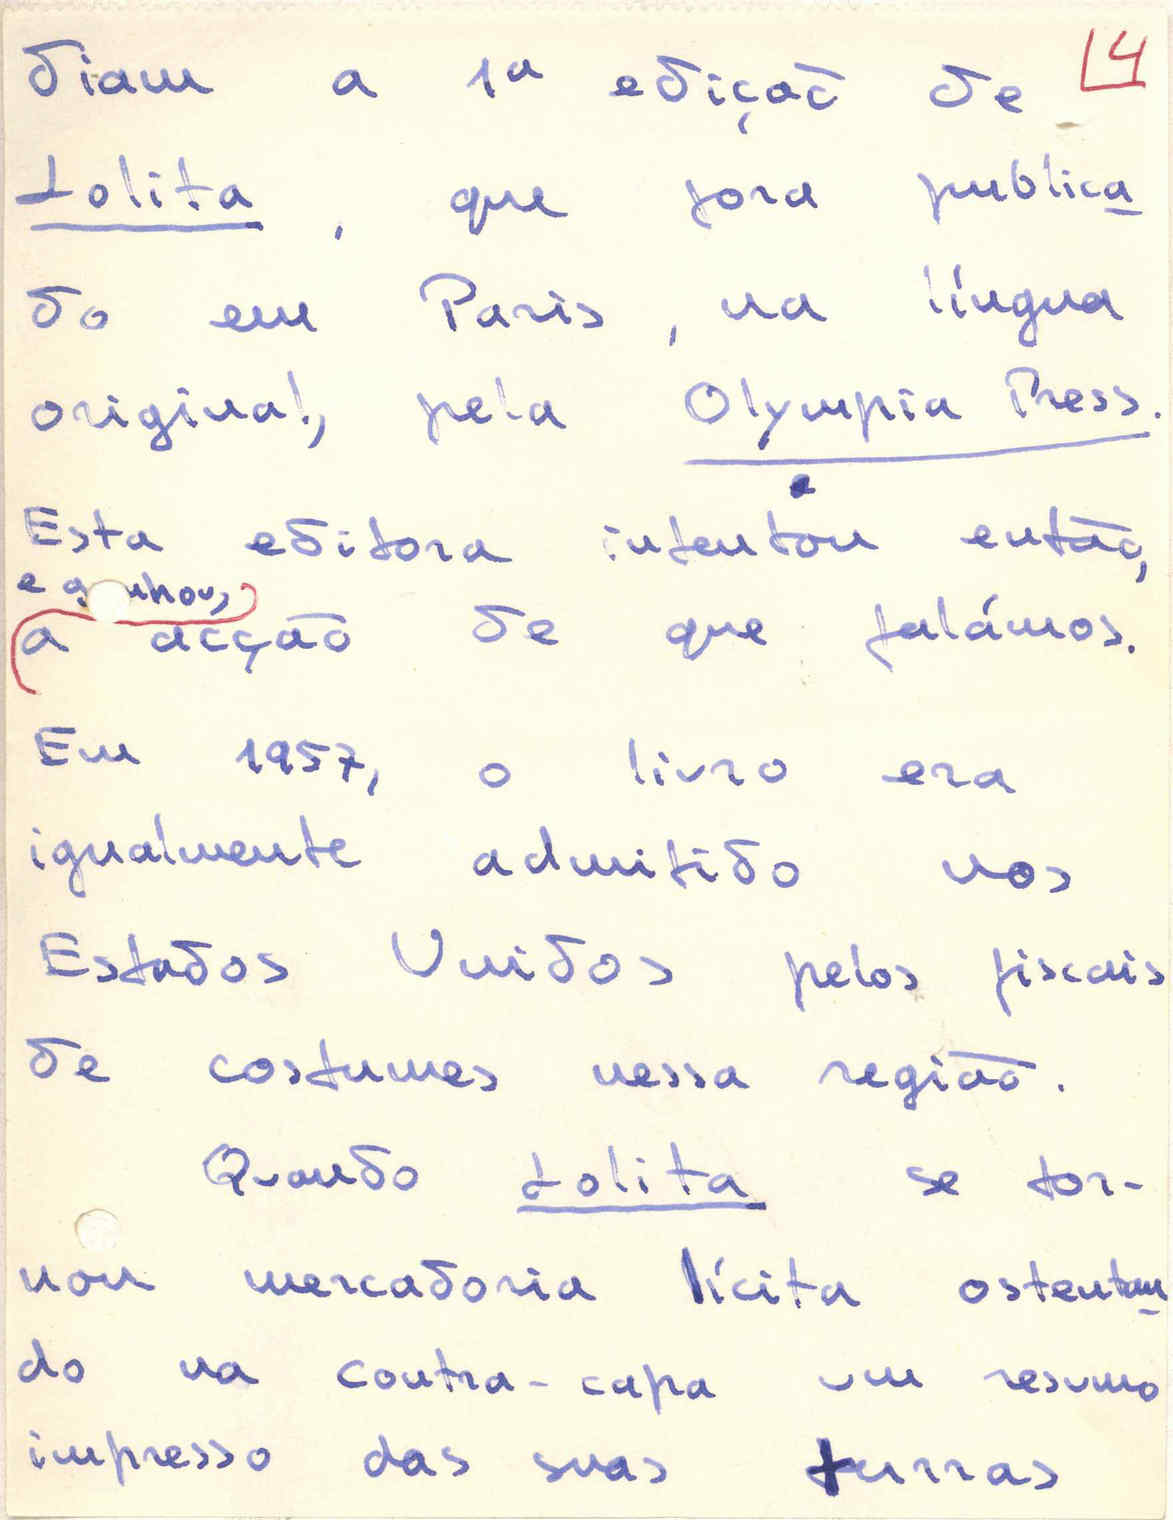 4
diam a 1ª edição de
Lolita, que fora publica
do em Paris, na língua
original, pela Olympia Press.
Esta editora intentou então,
e ganhou,
a acção de que falámos.
Em 1957, o livro era
igualmente admitido nos
Estados Unidos pelos fiscais
de costumes nessa região.
Quando Lolita se tor-
nou mercadoria lícita ostentan
do na contra-capa um resumo
impresso das suas turras